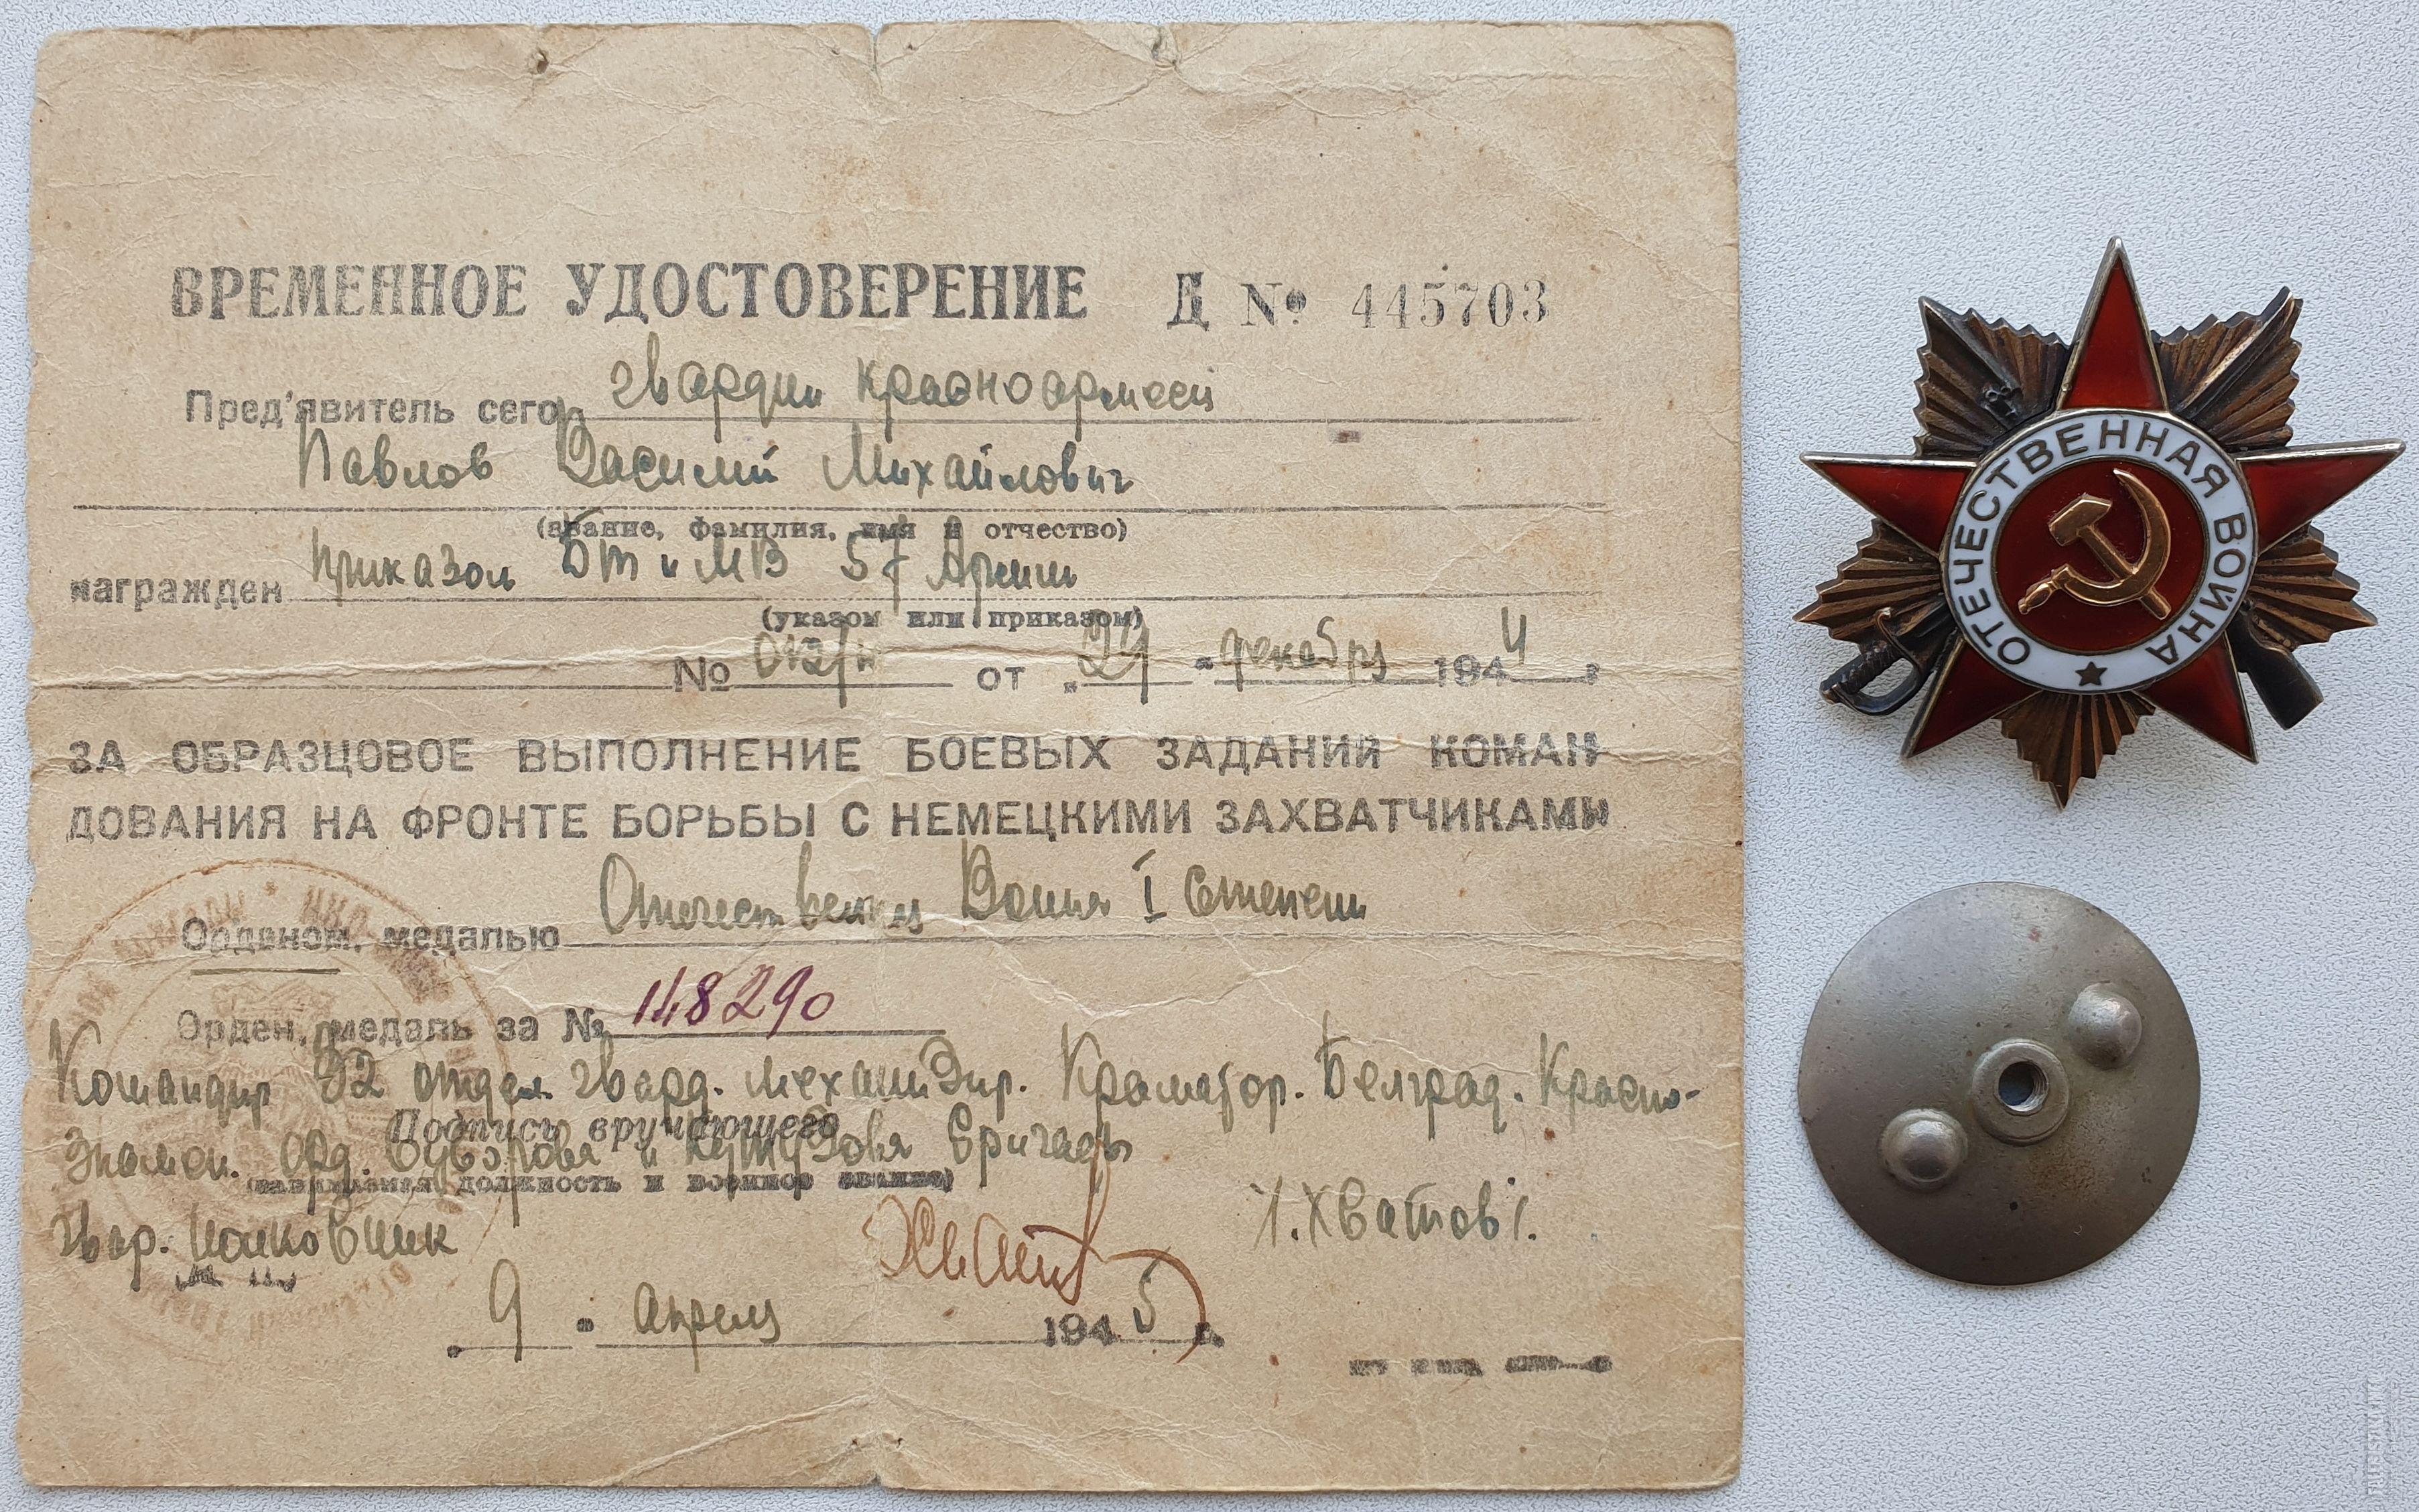 ВРЕМЕННОЕ УДОСТОВЕРЕНИЕ Д № 445703
Пред'явитель сего гвардии красноармеец
Павлов Василий Михайлович
(звание, фамилия, имя и отчество)
награжден приказом БТ и МВ 57 Армии
(указом или приказом)
№ от "29" декабря 1944 г
ЗА ОБРАЗЦОВОЕ ВЫПОЛНЕНИЕ БОЕВЫХ ЗАДАНИЙ КОМАН
ДОВАНИЯ НА ФРОНТЕ БОРЬБЫ С НЕМЕЦКИМИ ЗАХВАТЧИКАМИ
Орденом, медалью Отечествен Война I Степени
Орден, медаль за № 148290
Командир 32 отдел. гвард. механизир. Краматор. Белград. Красно-
Подпись вручающего
Знамен. орд. Суворова и Кутузова Бригады
должность и военное звание)
гвар. полковник /.Хватов/.
М П
"9" апреля 1945 г.
ОТЕЧЕСТВЕННАЯ ВОЙНА